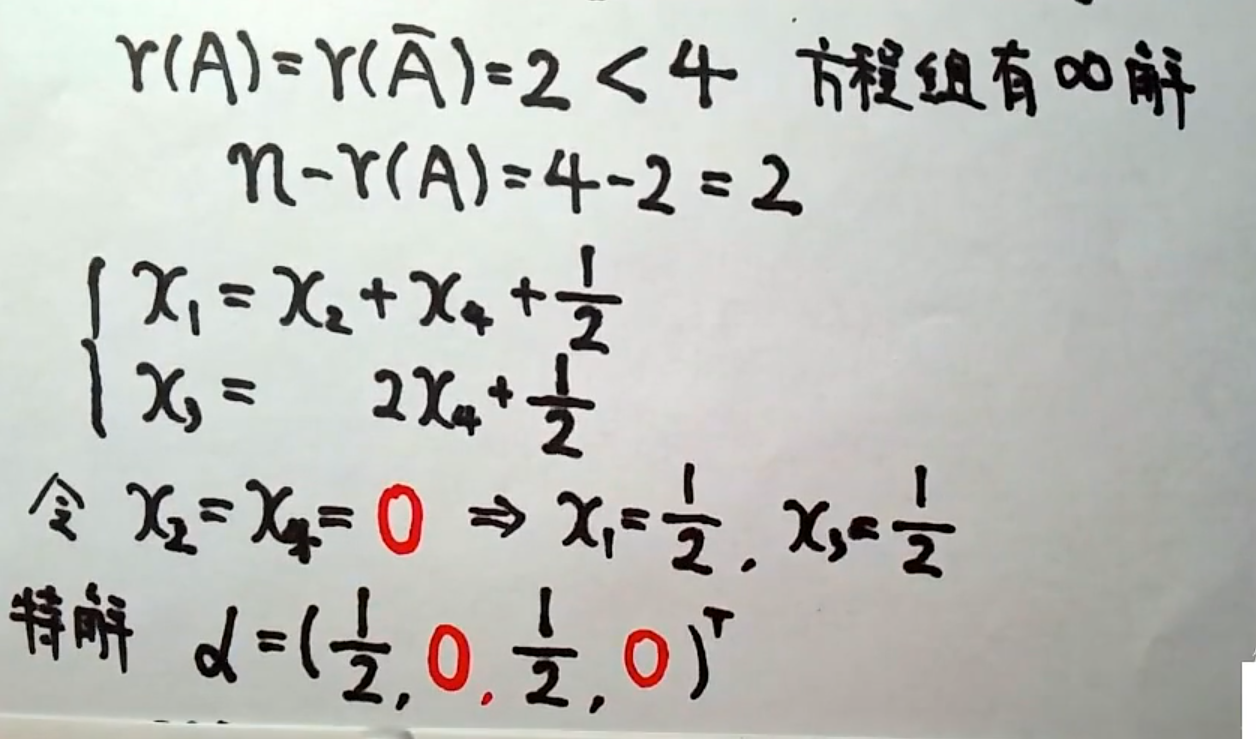 r(A)=r(Ā)=2<4 方程组有∞解
n-r(A)=4-2=2
x₁=x₂+x₄+1/2
x₃= 2x₄+1/2
令 x₂=x₄=0 ⇒ x₁=1/2, x₃=1/2
特解 α=(1/2,0,1/2,0)ᵀ